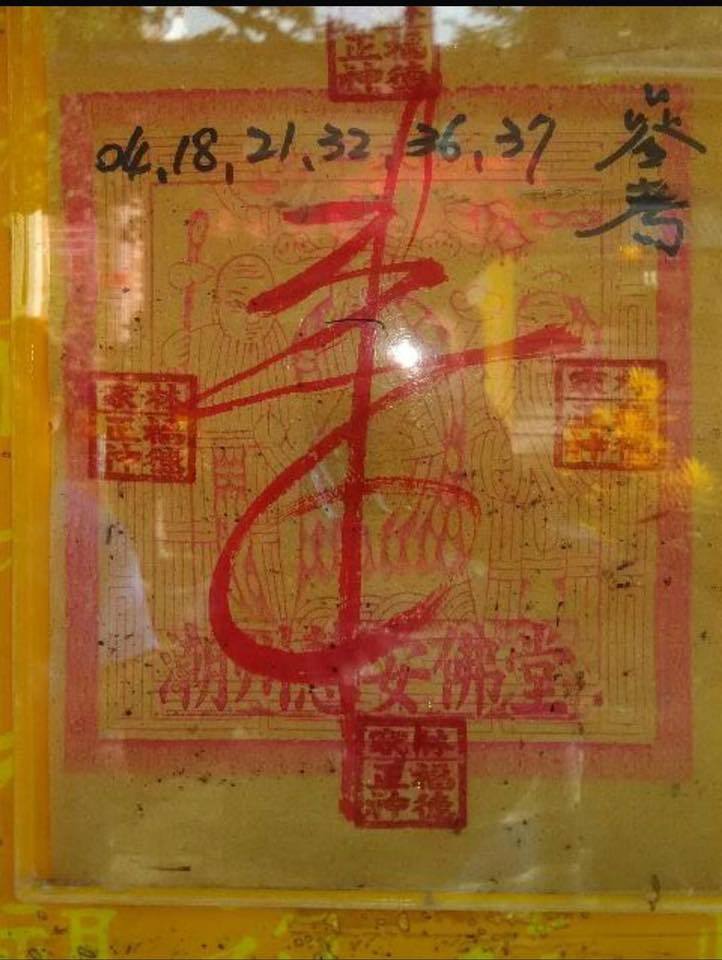 福德
正神
04,18,21,32,36,37
參考
林福德
家正神
林福德
家正神
潮州 安佛堂
林福德
家正神